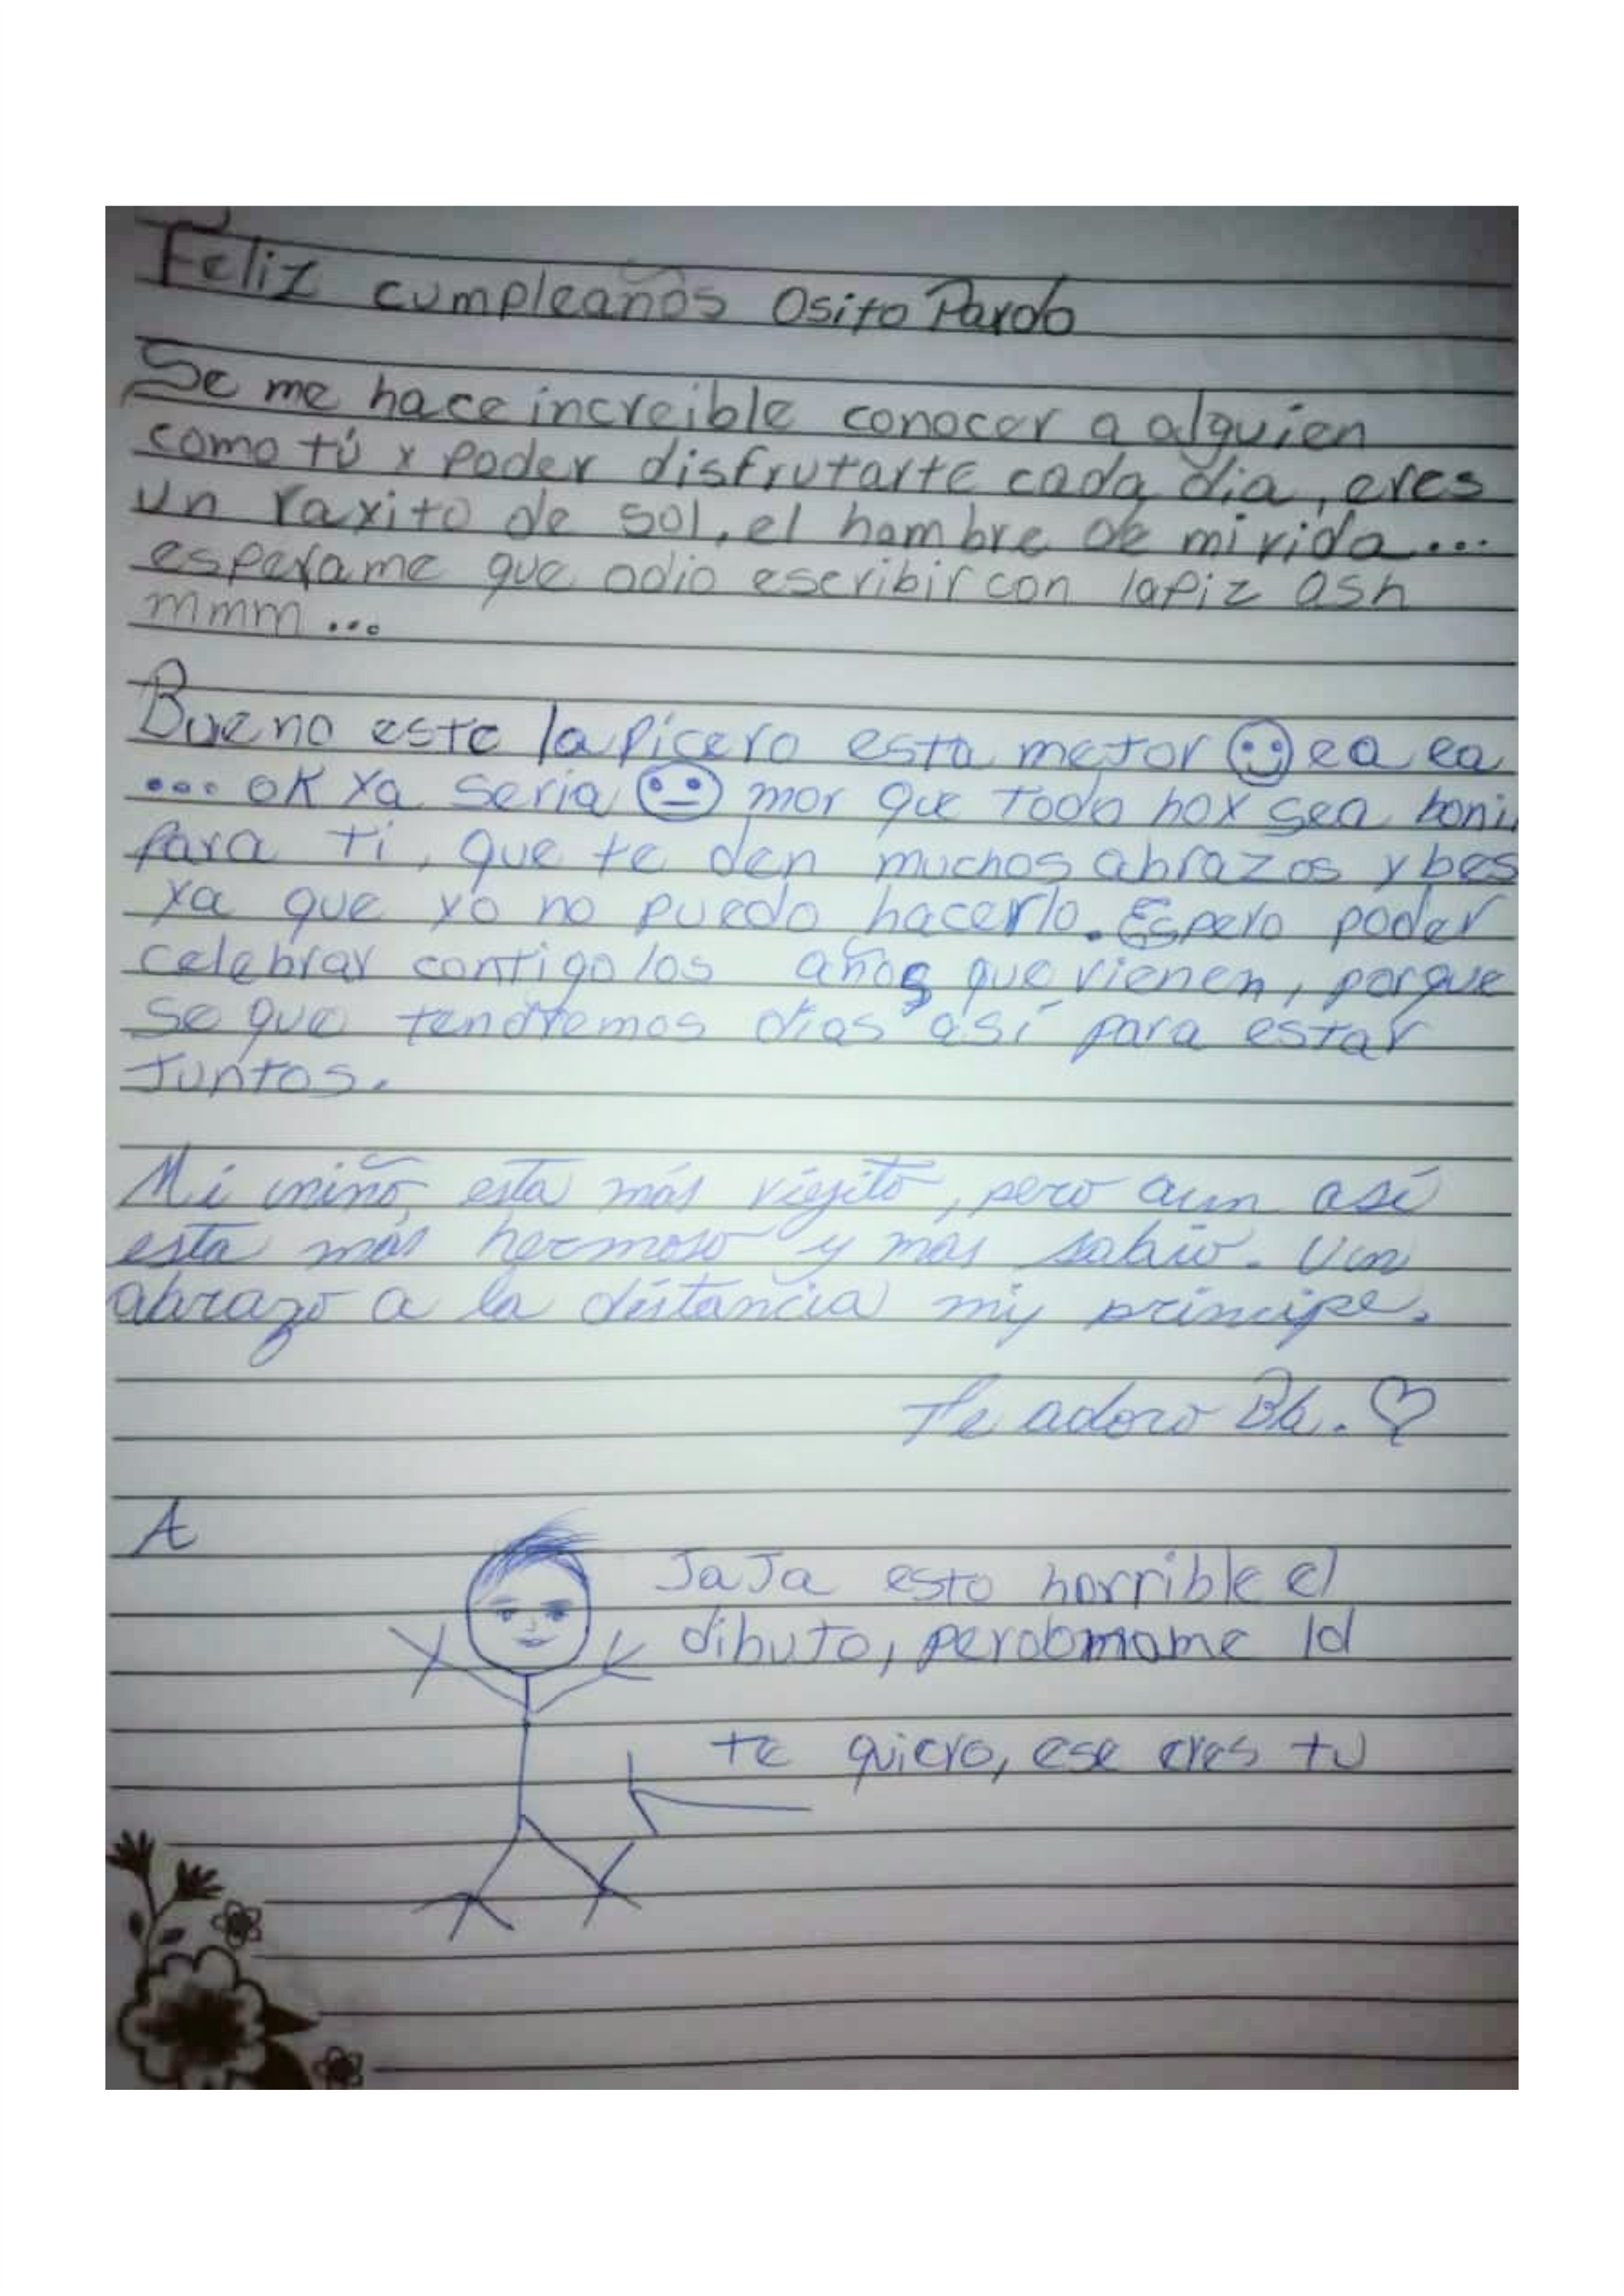 Feliz cumpleaños Osito Pardo
Se me hace increible conocer a alguien
como tú y poder disfrutarte cada día, eres
un rayito de sol, el hombre de mi vida...
esperame que odio escribir con lapiz ash
mmm...
Bueno este lapicero esta mejor ea ea
... ok ya seria mor que todo hoy sea boni
para ti, que te den muchos abrazos y bes
ya que yo no puedo hacerlo. Espero poder
celebrar contigo los años que vienen, porque
se que tendremos días así para estar
Juntos.
Mi niño, esta más viejito, pero aun así
esta más hermoso y más sabio. Un
abrazo a la distancia my principe.
Te adoro Bb.
A
JaJa esto horrible el
dibujo, perdoname
te quiero, ese eres tu